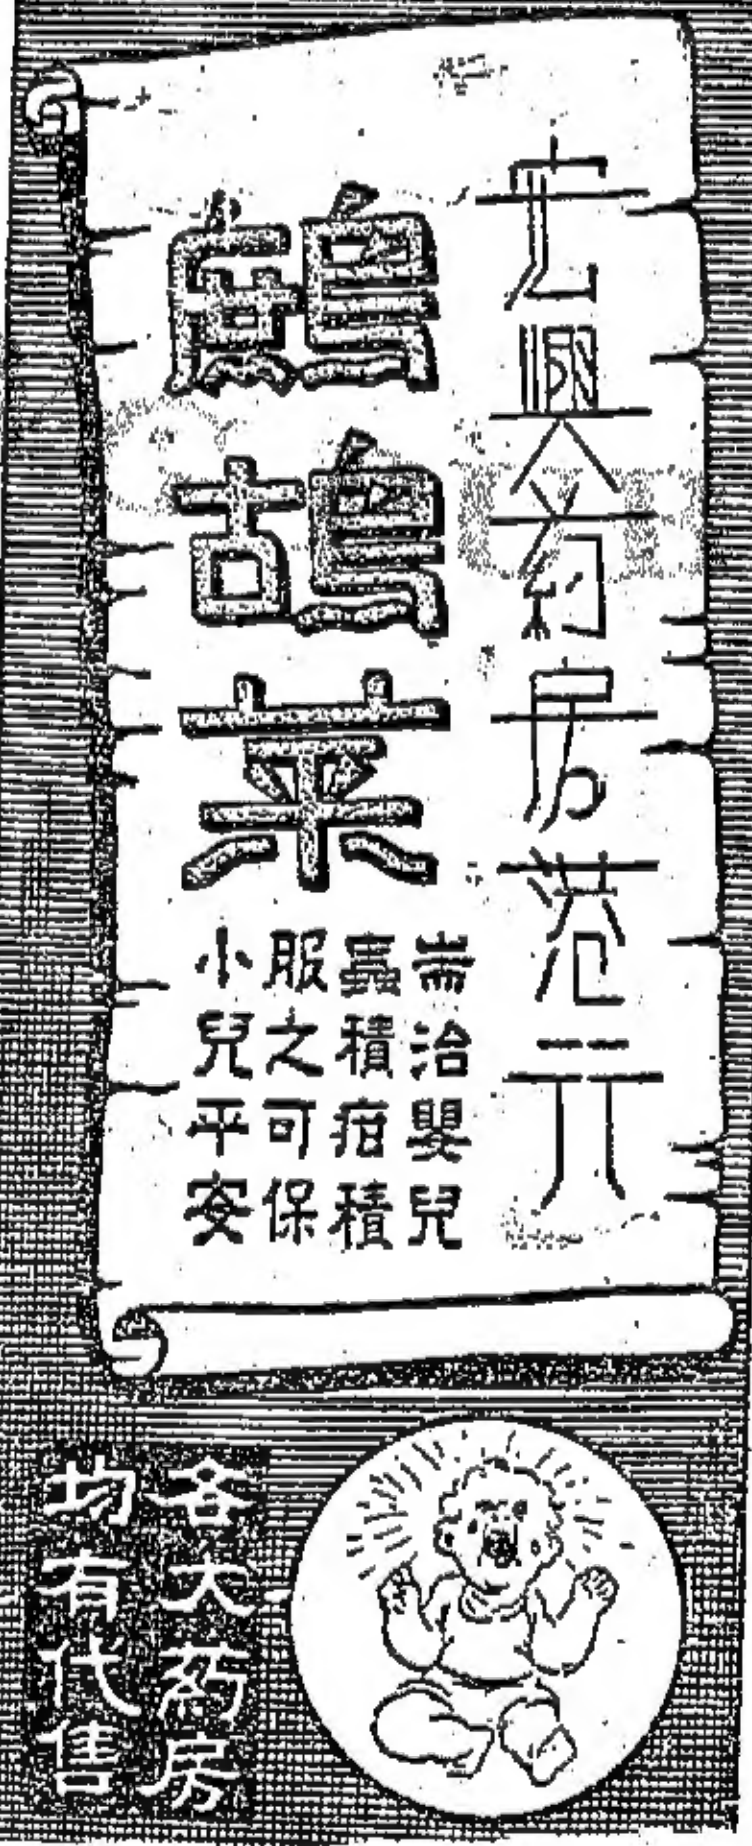 宏興葯房港行
鷓鴣菜
耑治嬰兒
蟲積疳積
服之可保
小兒平安
各大葯房
均有代售